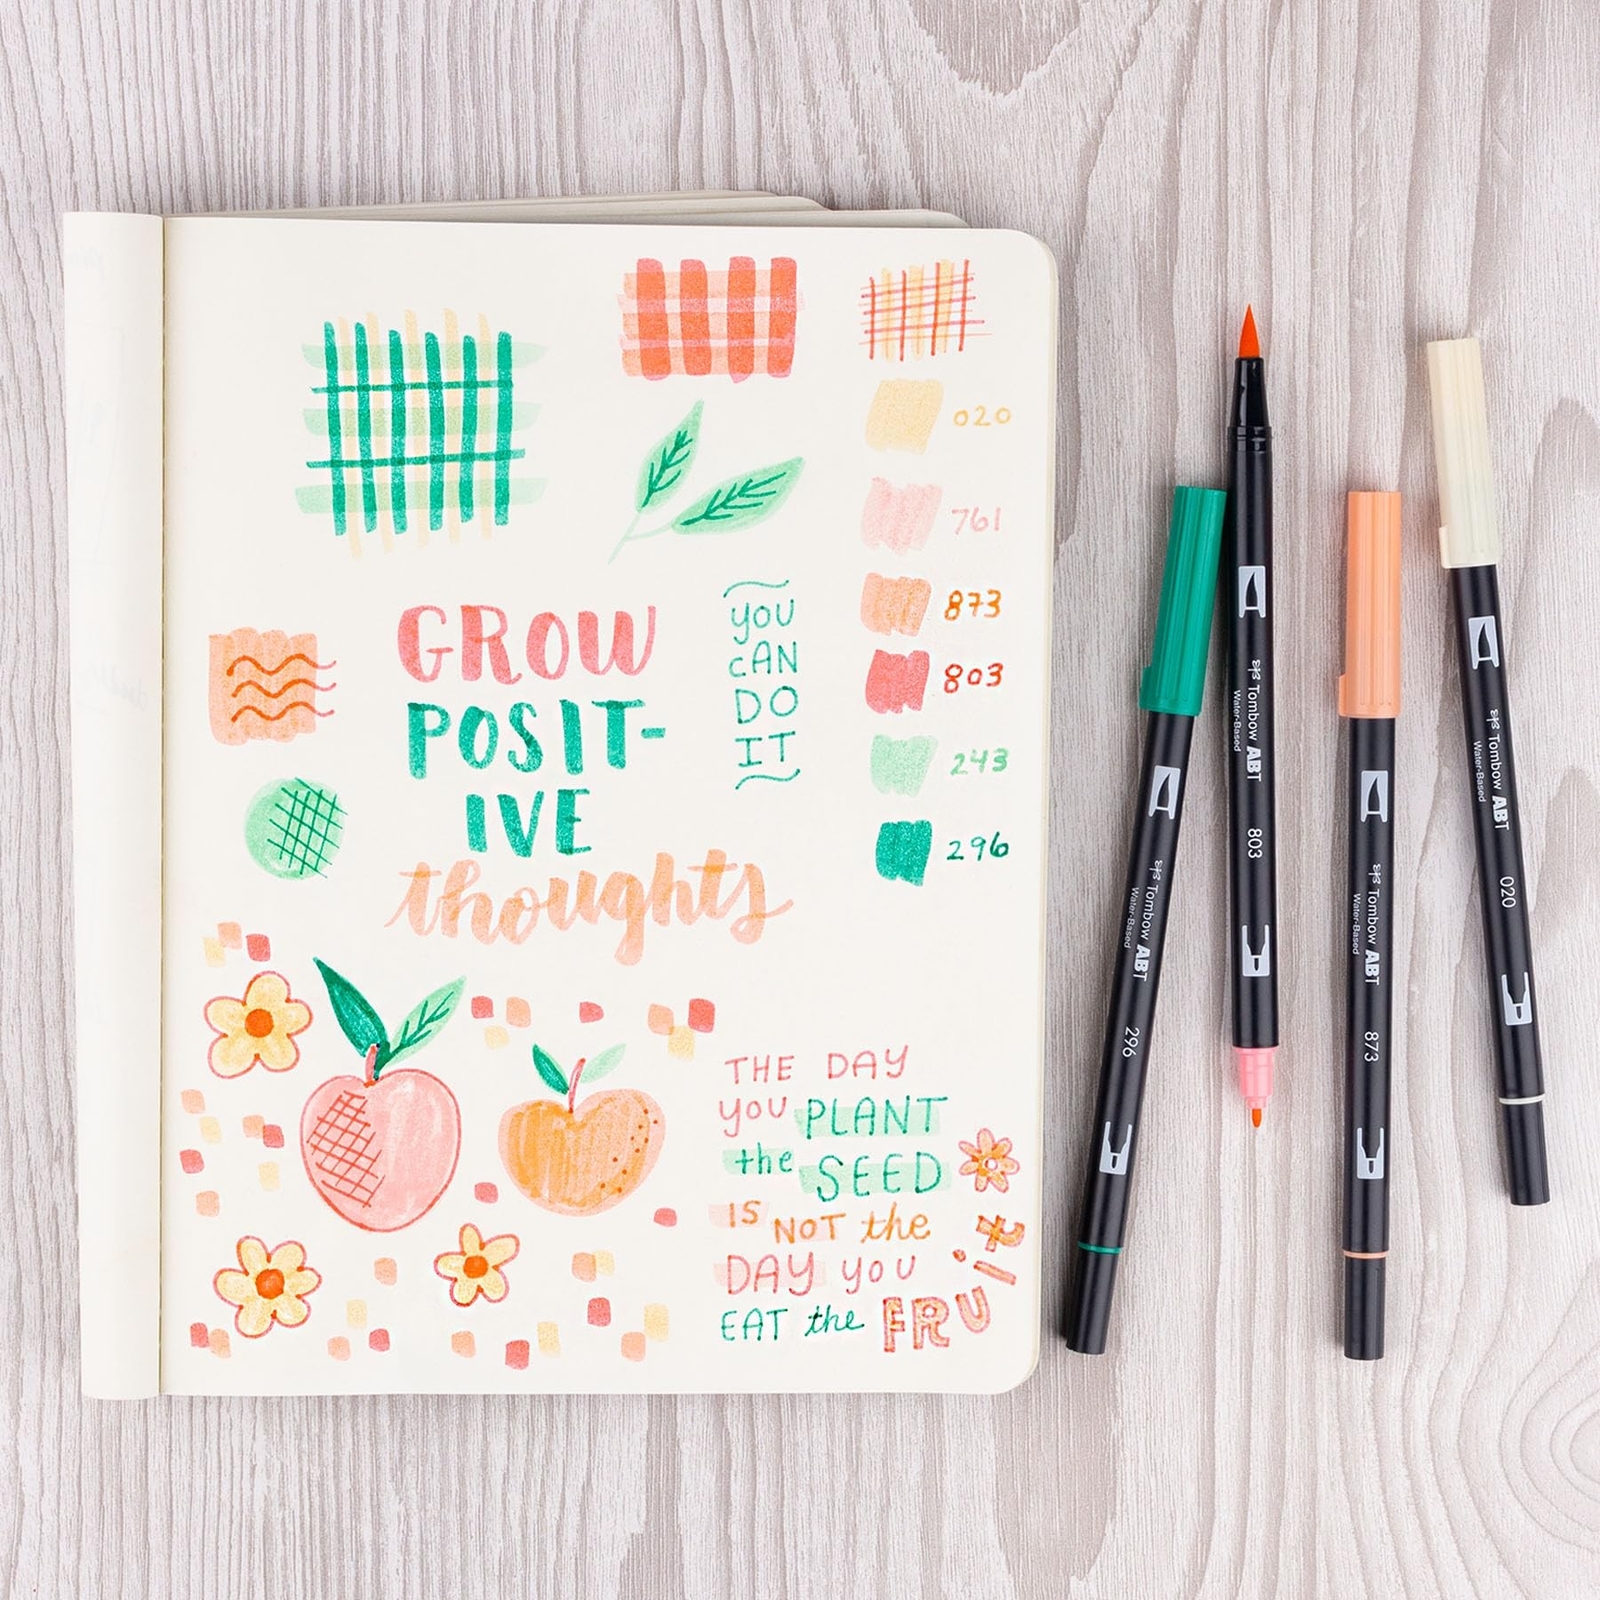 020
761
873
803
243
296
GROW
POSIT-
IVE
thoughts
YOU
CAN
DO
IT
THE DAY
YOU PLANT
the SEED
IS NOT the
DAY YOU
EAT the FRUit
Tombow ABT
Water-Based
296
Tombow ABT
Water-Based
803
Tombow ABT
Water-Based
873
Tombow ABT
Water-Based
020